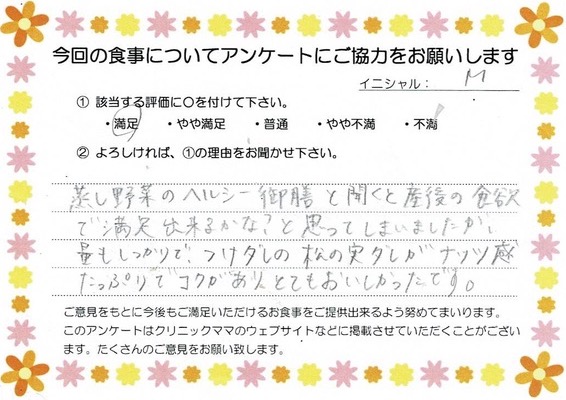 今回の食事についてアンケートにご協力をお願いします
イニシャル： M
① 該当する評価に〇を付けて下さい。
・満足 ・やや満足 ・普通 ・やや不満 ・不満
② よろしければ、①の理由をお聞かせ下さい。
蒸し野菜のヘルシー御膳と聞くと産後の食欲
で満足出来るかな？と思ってしまいましたが、
量もしっかりで、つけダレの松の実ダレがナッツ感
たっぷりでコクがありとてもおいしかったです。
ご意見をもとに今後もご満足いただけるお食事をご提供出来るよう努めてまいります。
このアンケートはクリニックママのウェブサイトなどに掲載させていただくことがござい
ます。たくさんのご意見をお願い致します。